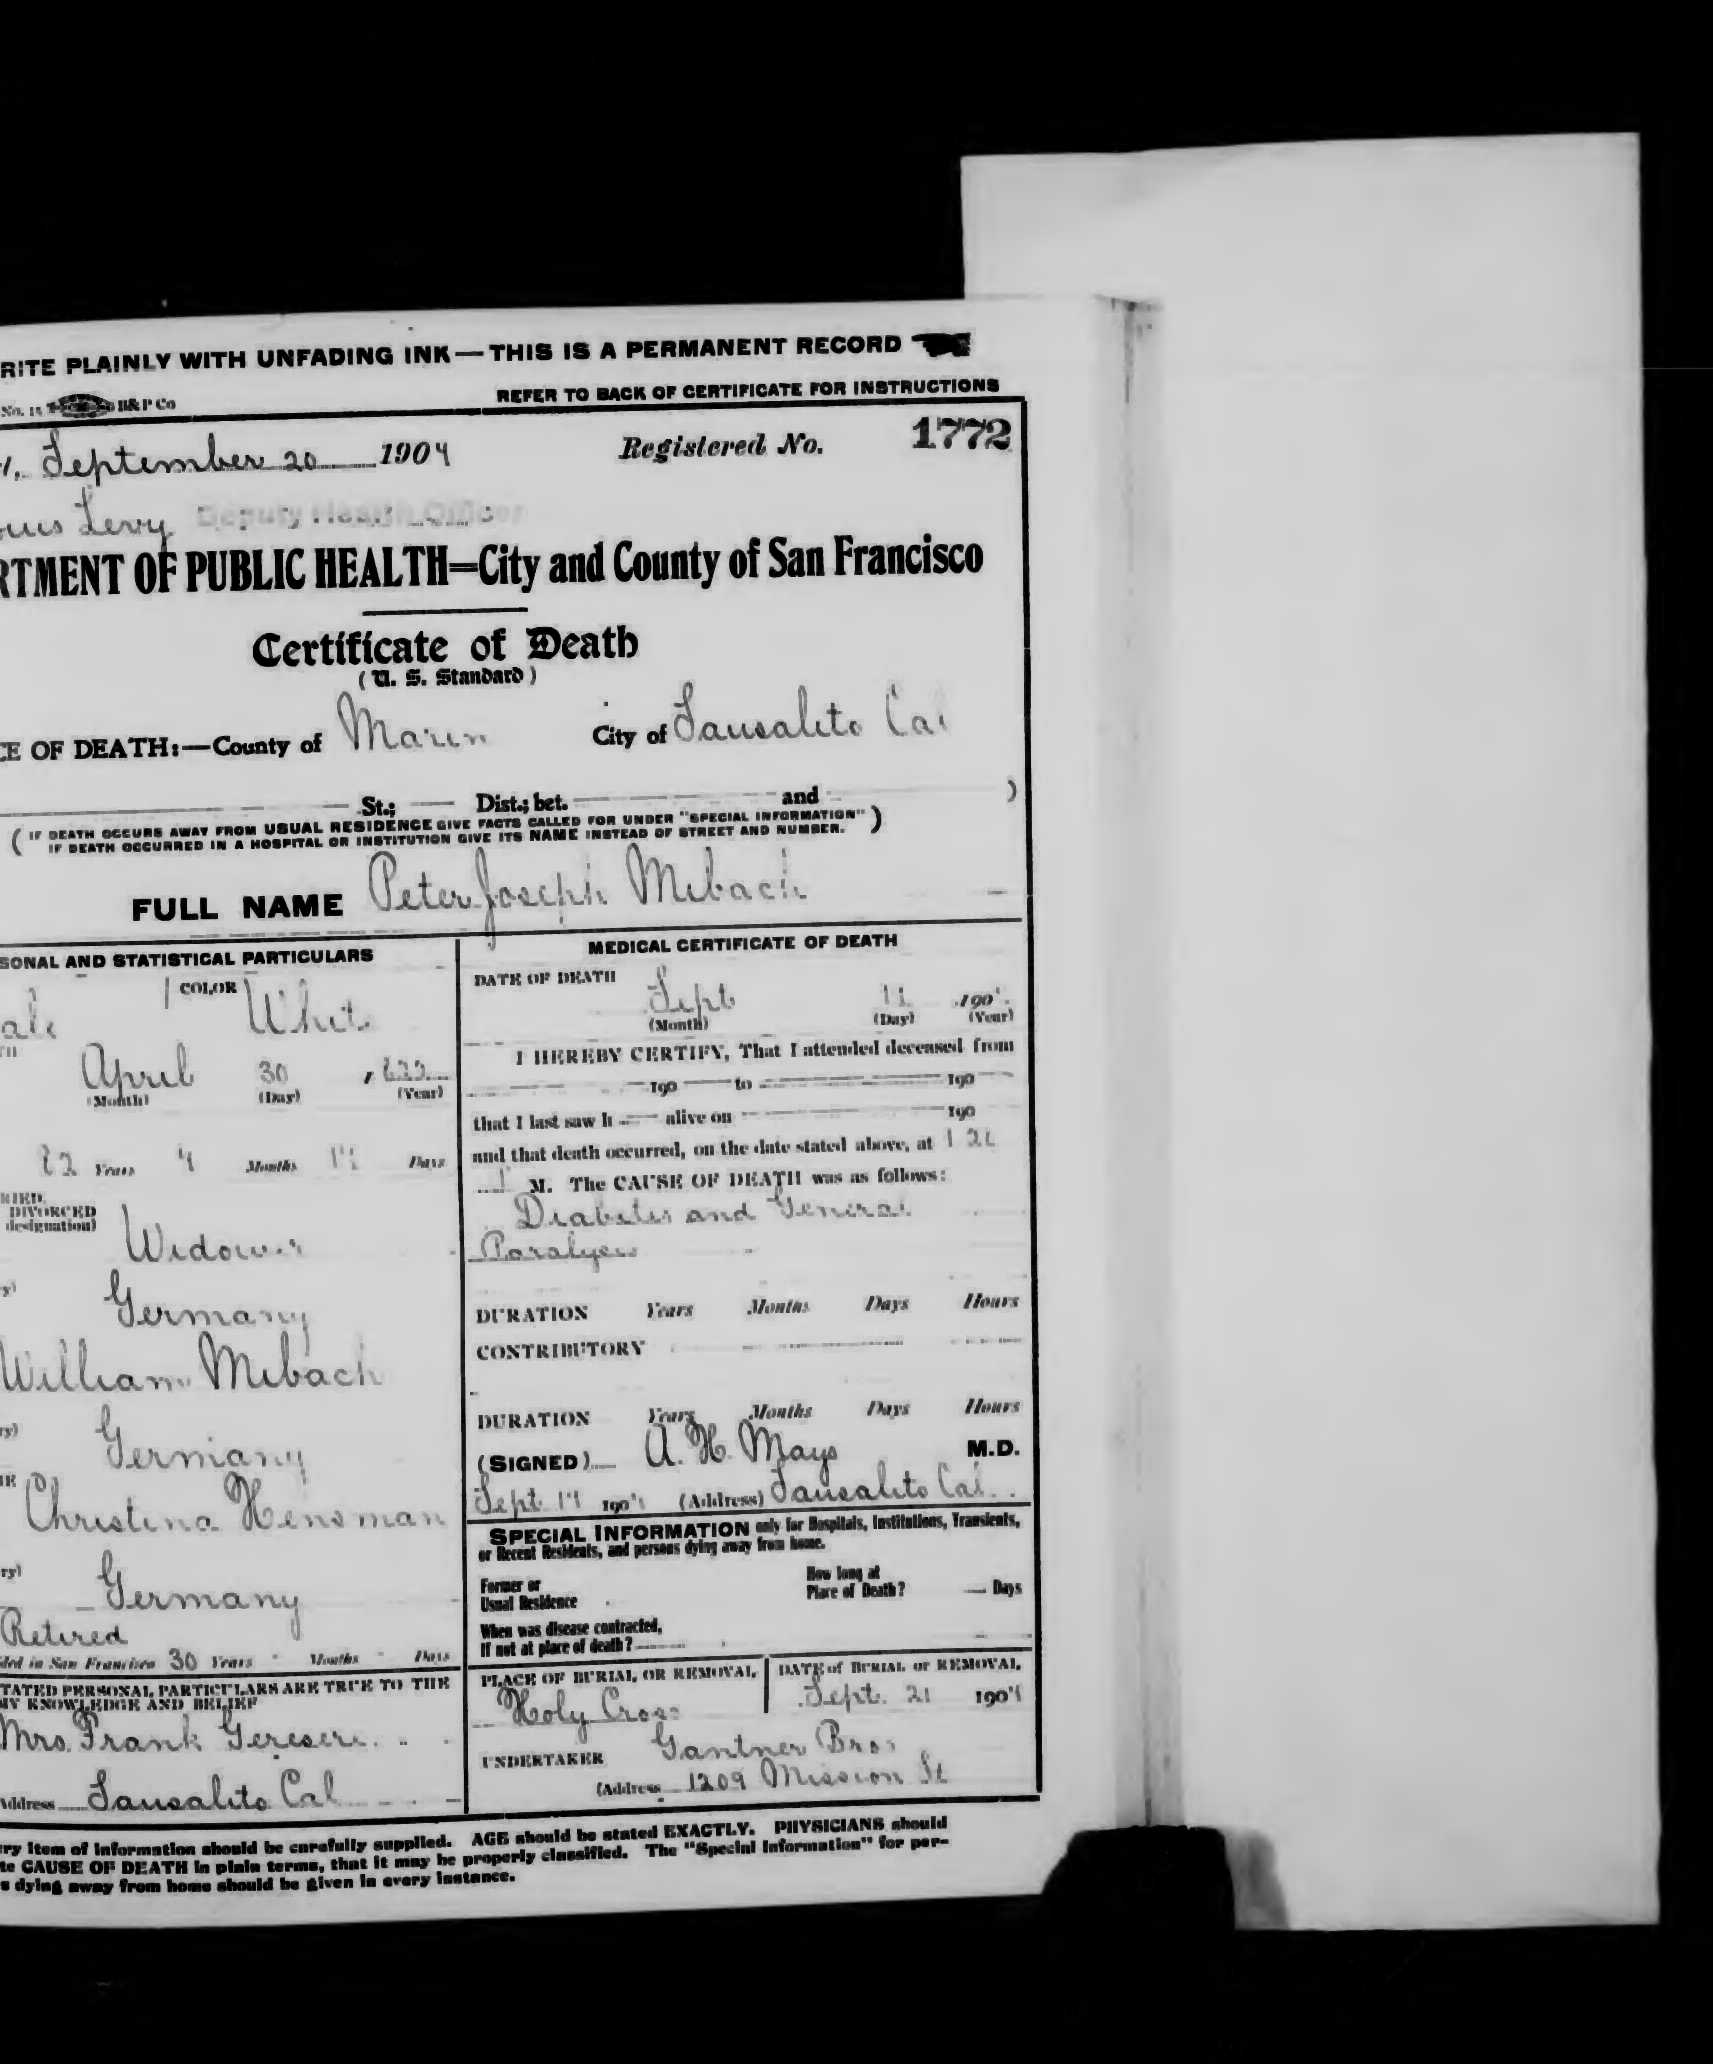 RITE PLAINLY WITH UNFADING INK—THIS IS A PERMANENT RECORD
No. 15 H&P Co
REFER TO BACK OF CERTIFICATE FOR INSTRUCTIONS
September 20 1904 Registered No. 1772
Levy Deputy Health Officer
RTMENT OF PUBLIC HEALTH—City and County of San Francisco
Certificate of Death
(U. S. Standard)
CE OF DEATH:—County of Marin City of Sausalito Cal
St.; Dist.; bet. and )
( IF DEATH OCCURS AWAY FROM USUAL RESIDENCE GIVE FACTS CALLED FOR UNDER "SPECIAL INFORMATION" )
IF DEATH OCCURRED IN A HOSPITAL OR INSTITUTION GIVE ITS NAME INSTEAD OF STREET AND NUMBER.
FULL NAME Peter Joseph Mibach
SONAL AND STATISTICAL PARTICULARS
ale COLOR White
April 30
(Month) (Day) (Year)
Years 4 Months Days
RIED,
DIVORCED
designation)
Widower
Germany
William Mibach
ry) Germany
Christina Hensman
ry) Germany
Retired
ded in San Francisco 30 Years Months Days
TATED PERSONAL PARTICULARS ARE TRUE TO THE
MY KNOWLEDGE AND BELIEF
Mrs. Frank
Address Sausalito Cal
MEDICAL CERTIFICATE OF DEATH
DATE OF DEATH
Sept 190
(Month) (Day) (Year)
I HEREBY CERTIFY, That I attended deceased from
190 to 190
that I last saw h alive on 190
and that death occurred, on the date stated above, at
M. The CAUSE OF DEATH was as follows:
Diabetes and General
Paralysis
DURATION Years Months Days Hours
CONTRIBUTORY
DURATION Years Months Days Hours
(SIGNED) A. H. Mays M.D.
Sept 190 (Address) Sausalito Cal.
SPECIAL INFORMATION only for Hospitals, Institutions, Transients,
or Recent Residents, and persons dying away from home.
Former or
Usual Residence
How long at
Place of Death? Days
When was disease contracted,
If not at place of death?
PLACE OF BURIAL OR REMOVAL
Holy Cross
DATE of BURIAL or REMOVAL
Sept. 21 1904
UNDERTAKER Gantner Bros
(Address 1209 Mission St
ry item of information should be carefully supplied. AGE should be stated EXACTLY. PHYSICIANS should
te CAUSE OF DEATH in plain terms, that it may be properly classified. The "Special Information" for per-
s dying away from home should be given in every instance.